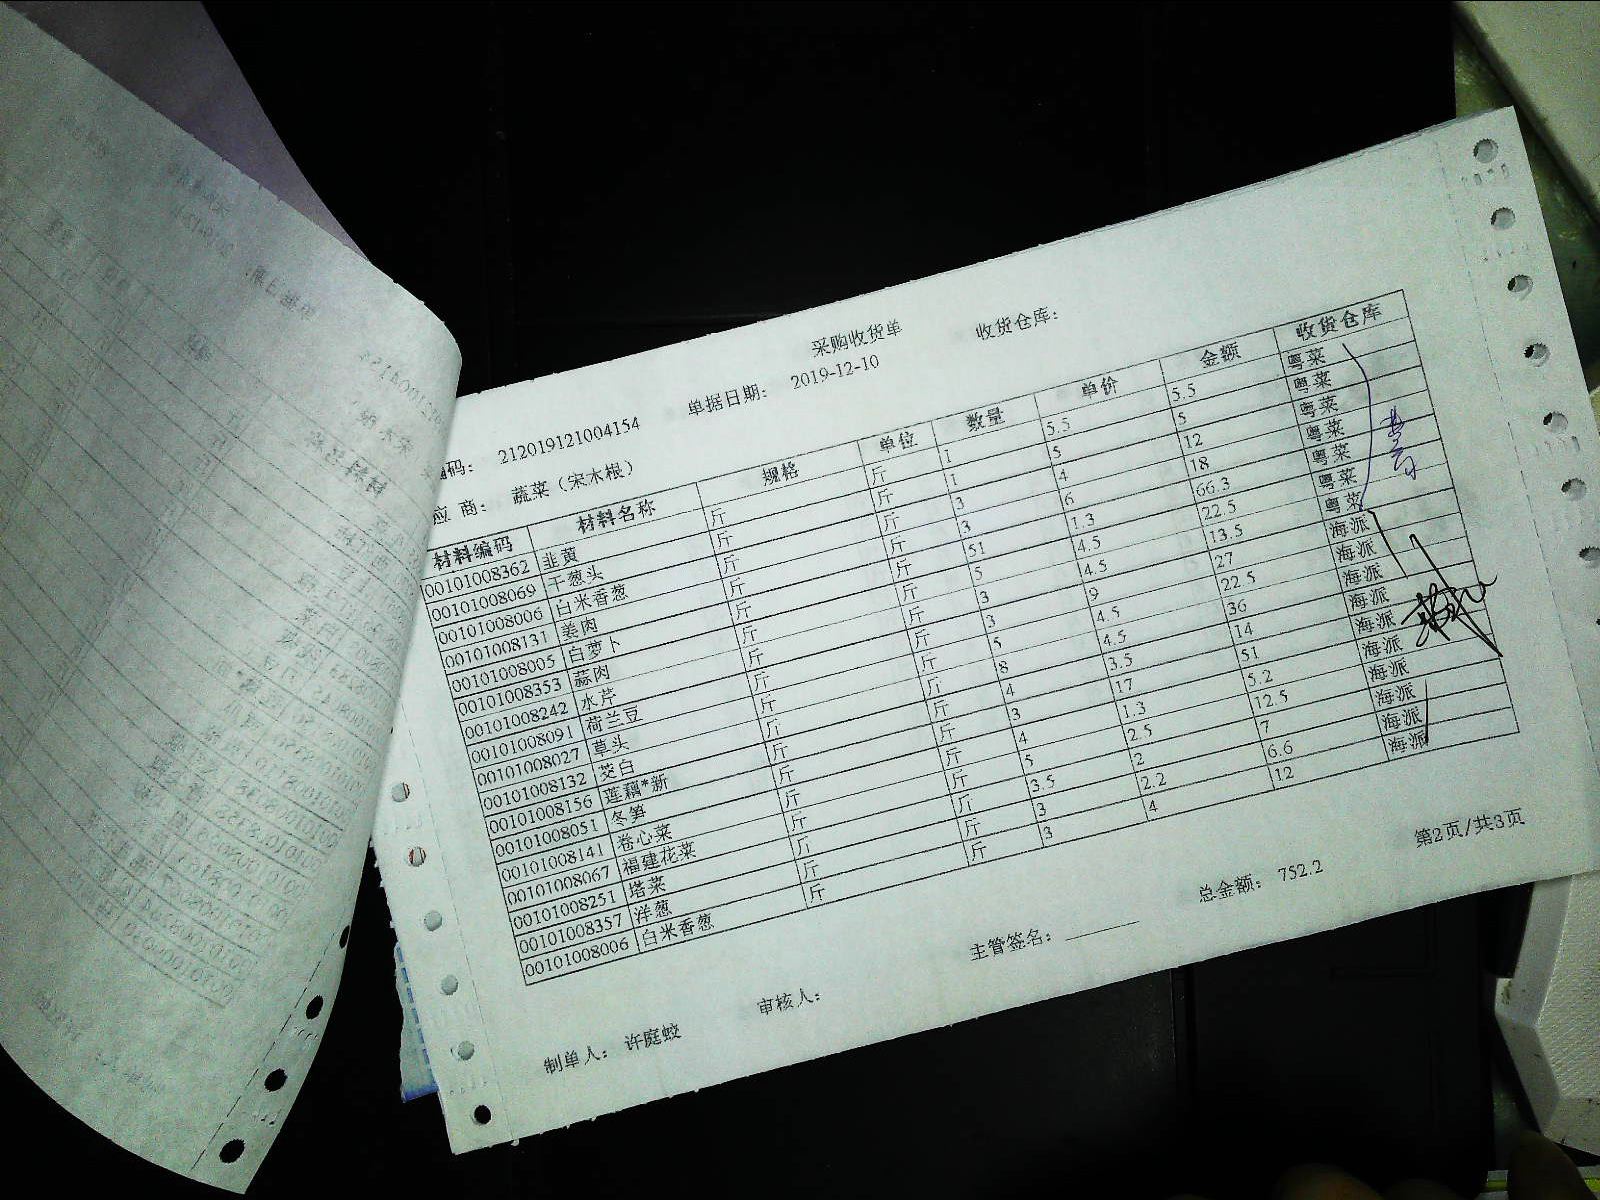 采购收货单
编码： 212019121004154 单据日期： 2019-12-10 收货仓库：
应 商： 蔬菜（宋木根）
材料编码 材料名称 规格 单位 数量 单价 金额 收货仓库
00101008362 韭黄 斤 斤 1 5.5 5.5 粤菜
00101008069 干葱头 斤 斤 1 5 5 粤菜
00101008006 白米香葱 斤 斤 3 4 12 粤菜
00101008131 姜肉 斤 斤 3 6 18 粤菜
00101008005 白萝卜 斤 斤 51 1.3 66.3 粤菜
00101008353 蒜肉 斤 斤 5 4.5 22.5 粤菜
00101008242 水芹 斤 斤 3 4.5 13.5 粤菜
00101008091 荷兰豆 斤 斤 3 9 27 海派
00101008027 草头 斤 斤 5 4.5 22.5 海派
00101008132 茭白 斤 斤 8 4.5 36 海派
00101008156 莲藕*新 斤 斤 4 3.5 14 海派
00101008051 冬笋 斤 斤 3 17 51 海派
00101008141 卷心菜 斤 斤 4 1.3 5.2 海派
00101008067 福建花菜 斤 斤 5 2.5 12.5 海派
00101008251 塔菜 斤 斤 3.5 2 7 海派
00101008357 洋葱 斤 斤 3 2.2 6.6 海派
00101008006 白米香葱 斤 斤 3 4 12 海派
制单人： 许庭蛟 审核人： 主管签名： 总金额： 752.2 第2页/共3页